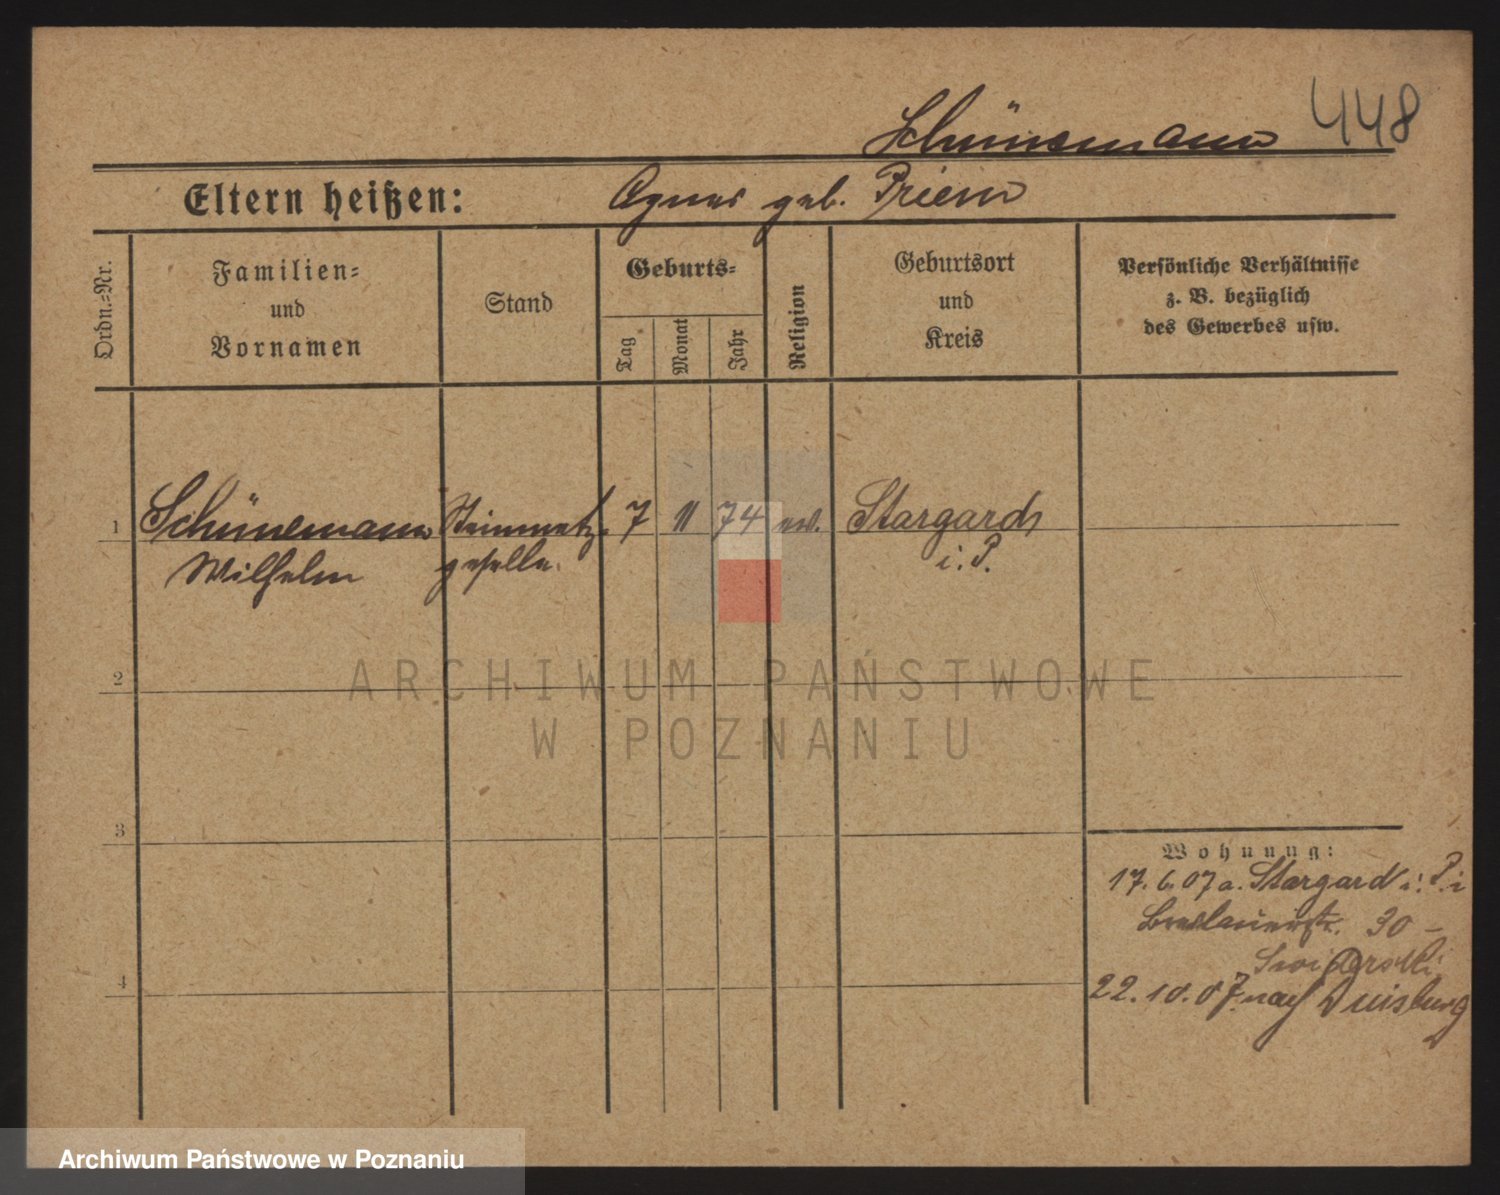 448
Schünemann
Eltern heißen: Agnes geb. Priem
Ordn.-Nr.
Familien-
und
Vornamen
Stand
Geburts-
Tag
Monat
Jahr
Religion
Geburtsort
und
Kreis
Persönliche Verhältnisse
z. B. bezüglich
des Gewerbes usw.
1 Schünemann Steinmetz- 7 11 74 ev. Stargard
Wilhelm geselle. i. P.
2
3
4
Wohnung:
17. 6. 07 a. Stargard i. P. i
Breslauerstr. 30 -
22. 10. 07 nach Duisburg
ARCHIWUM PAŃSTWOWE
W POZNANIU
Archiwum Państwowe w Poznaniu